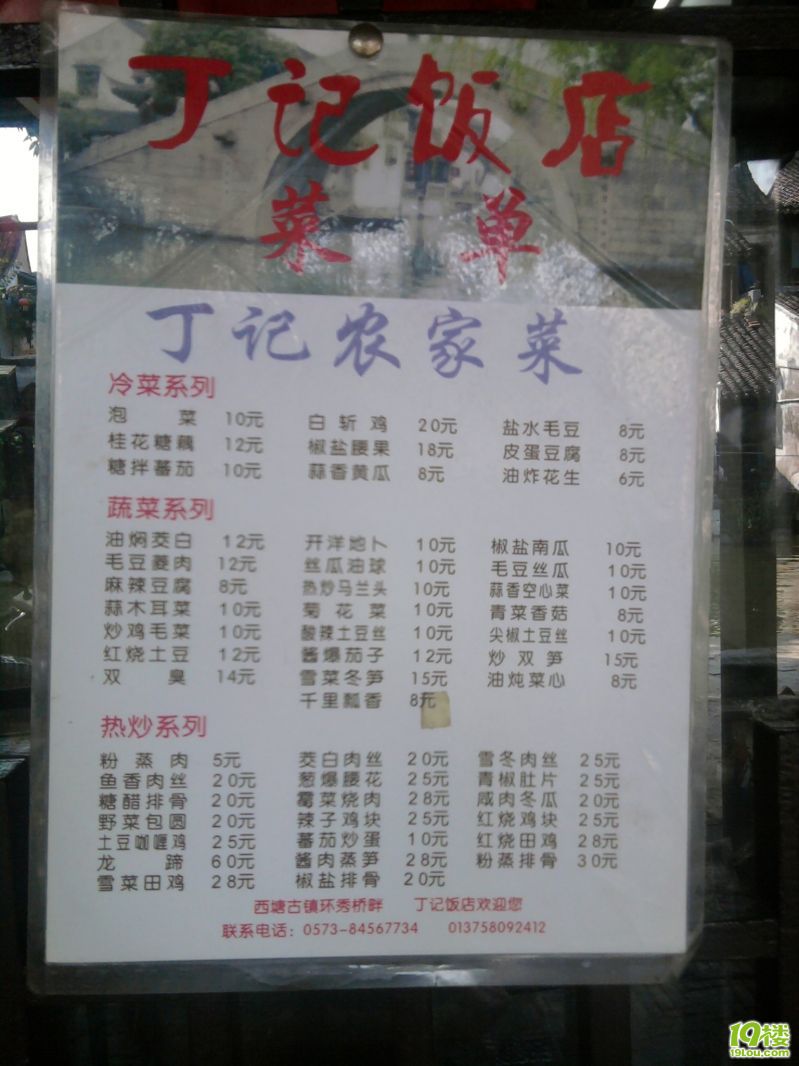 丁记饭店
菜单
丁记农家菜
冷菜系列
泡菜 10元 白斩鸡 20元 盐水毛豆 8元
桂花糖藕 12元 椒盐腰果 18元 皮蛋豆腐 8元
糖拌蕃茄 10元 蒜香黄瓜 8元 油炸花生 6元
蔬菜系列
油焖茭白 12元 开洋地卜 10元 椒盐南瓜 10元
毛豆菱肉 12元 丝瓜油球 10元 毛豆丝瓜 10元
麻辣豆腐 8元 热炒马兰头 10元 蒜香空心菜 10元
蒜木耳菜 10元 菊花菜 10元 青菜香菇 8元
炒鸡毛菜 10元 酸辣土豆丝 10元 尖椒土豆丝 10元
红烧土豆 12元 酱爆茄子 12元 炒双笋 15元
双臭 14元 雪菜冬笋 15元 油炖菜心 8元
千里瓢香 8元
热炒系列
粉蒸肉 5元 茭白肉丝 20元 雪冬肉丝 25元
鱼香肉丝 20元 葱爆腰花 25元 青椒肚片 25元
糖醋排骨 20元 霉菜烧肉 28元 咸肉冬瓜 20元
野菜包圆 20元 辣子鸡块 25元 红烧鸡块 25元
土豆咖喱鸡 25元 蕃茄炒蛋 10元 红烧田鸡 28元
龙蹄 60元 酱肉蒸笋 28元 粉蒸排骨 30元
雪菜田鸡 28元 椒盐排骨 20元
西塘古镇环秀桥畔 丁记饭店欢迎您
联系电话：0573-84567734 013758092412
19楼
19lou.com